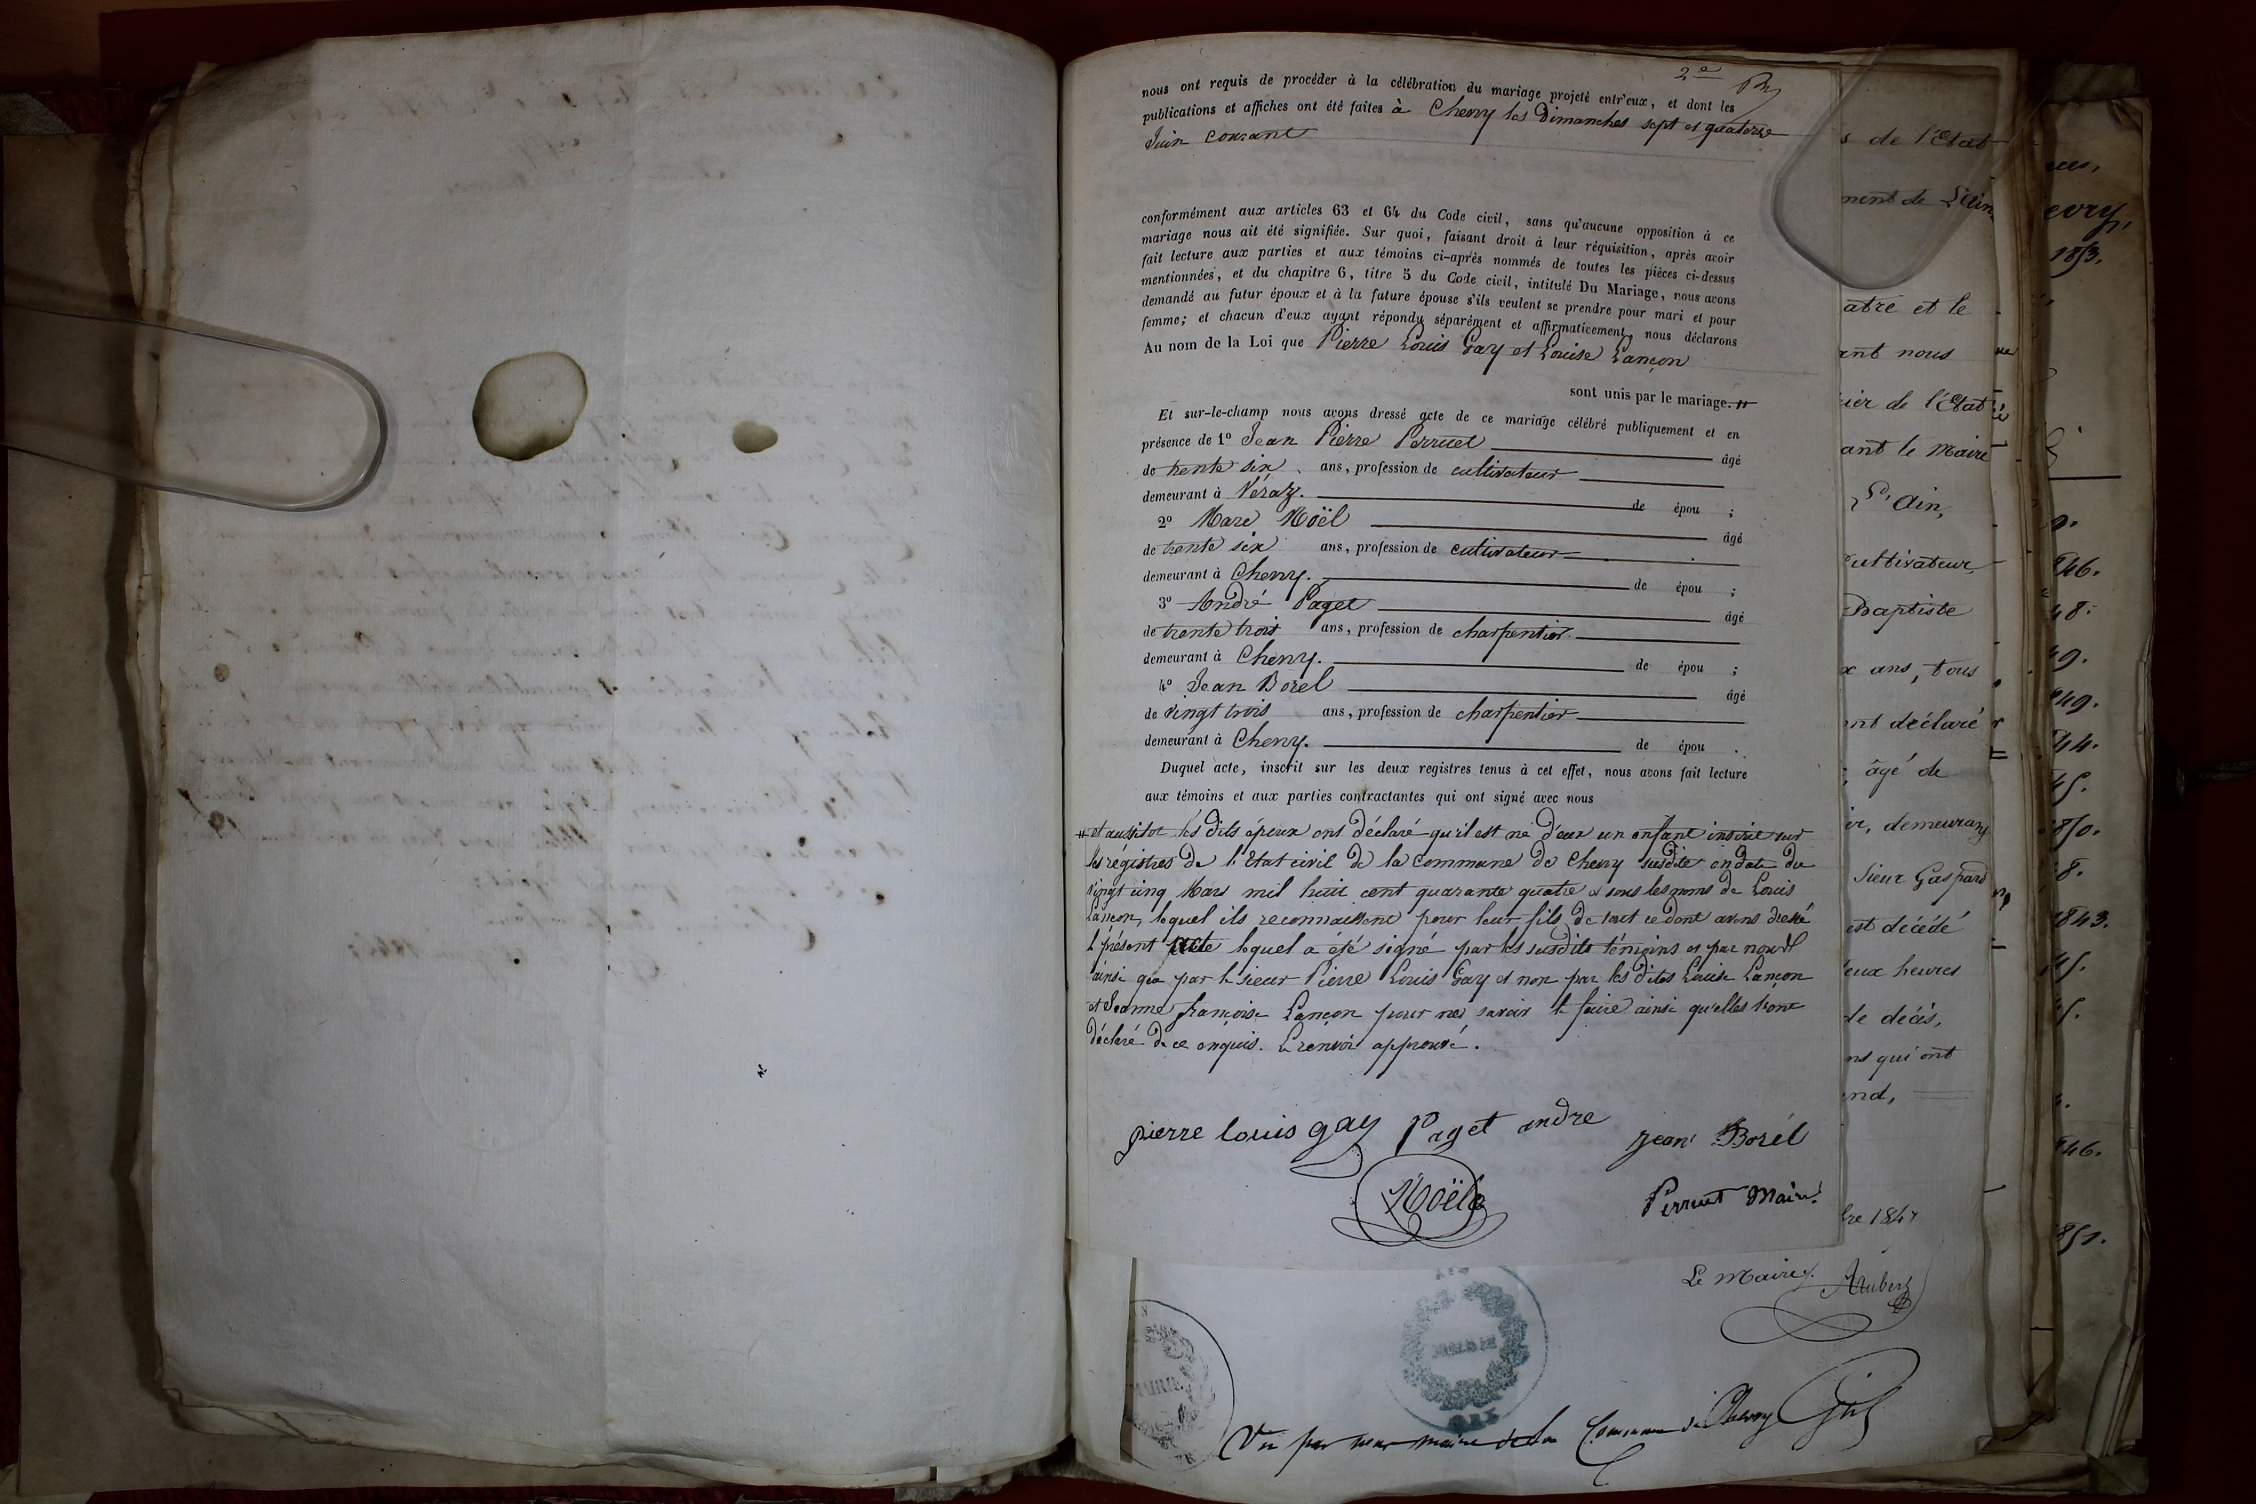 2e
nous ont requis de procéder à la célébration du mariage projeté entr'eux, et dont les
publications et affiches ont été faites à Chevry les Dimanches sept et quatorze
Juin courant
conformément aux articles 63 et 64 du Code civil, sans qu'aucune opposition à ce
mariage nous ait été signifiée. Sur quoi, faisant droit à leur réquisition, après avoir
fait lecture aux parties et aux témoins ci-après nommés de toutes les pièces ci-dessus
mentionnées, et du chapitre 6, titre 5 du Code civil, intitulé Du Mariage, nous avons
demandé au futur époux et à la future épouse s'ils veulent se prendre pour mari et pour
femme; et chacun d'eux ayant répondu séparément et affirmativement, nous déclarons
Au nom de la Loi que Pierre Louis Gay et Louise Lançon
sont unis par le mariage. //
Et sur-le-champ nous avons dressé acte de ce mariage célébré publiquement et en
présence de 1º Jean Pierre Perruet âgé
de trente six ans, profession de cultivateur
demeurant à Véraz. de épou ;
2º Marc Noël âgé
de trente six ans, profession de cultivateur
demeurant à Chevry. de épou ;
3º André Paget âgé
de trente trois ans, profession de charpentier
demeurant à Chevry. de épou ;
4º Jean Borel âgé
de vingt trois ans, profession de charpentier
demeurant à Chevry. de épou .
Duquel acte, inscrit sur les deux registres tenus à cet effet, nous avons fait lecture
aux témoins et aux parties contractantes qui ont signé avec nous
// et aussitot les dits épeux ont déclaré qu'il est né d'eux un enfant inscrit sur
les régistres de l'Etat civil de la commune de Chevry susdite en date du
vingt cinq Mars mil huit cent quarante quatre et sous les noms de Louis
Lançon, lequel ils reconnaissent pour leur fils, de tout ce dont avons dressé
le présent acte lequel a été signé par les susdits témoins et par nous
ainsi que par le sieur Pierre Louis Gay et non par les dites Louise Lançon
et Jeanne françoise Lançon pour ne savoir le faire ainsi qu'elles l'ont
déclaré de ce enquis. Le renvoi approuvé.
pierre louis gay Paget andre Jean Borél
Noël
Perruet Maire
s de l'Etat
ment de L'Ain
atre et le
ant nous
cier de l'Etat
ant le Maire
L'Ain,
cultivateur
Baptiste
x ans, tous
ont déclaré
âgé de
ir, demeurant
Sieur Gaspard
est décédé
eux heures
de décès,
ns qui ont
nd,
bre 1847
Le Maire
Vu par nous maire de la Commune de Chevry
MAIRIE
GEX
evry,
1853.
846.
48.
49.
849.
844.
45.
1850.
8.
1843.
45.
45.
846.
851.